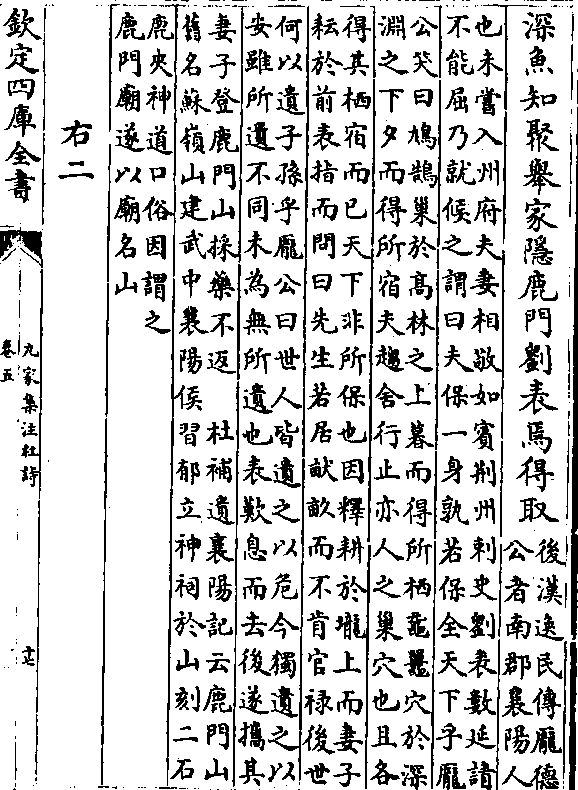 深魚知聚舉家隱鹿門劉表焉得取
後漢逸民傳龐德
公者南郡襄陽人
也未嘗入州府夫妻相敬如賓荆州刺史劉表數延請
不能屈乃就候之謂曰夫保一身孰若保全天下乎龐
公笑曰鴻鵠巢於髙林之上暮而得所栖黿鼉穴於深
淵之下夕而得所宿夫趨舍行止亦人之巢穴也且各
得其栖宿而已天下非所保也因釋耕於壠上而妻子
耘於前表指而問曰先生若居畎畝而不肯官禄後世
何以遺子孫乎龐公曰世人皆遺之以危今獨遺之以
安雖所遺不同未為無所遺也表歎息而去後遂攜其
妻子登鹿門山採藥不返 杜補遺襄陽記云鹿門山
舊名蘇嶺山建武中襄陽侯習郁立神祠於山刻二石
鹿夾神道口俗因謂之
鹿門廟遂以廟名山
右二
欽定四庫全書
九家集注杜詩
卷五
十七